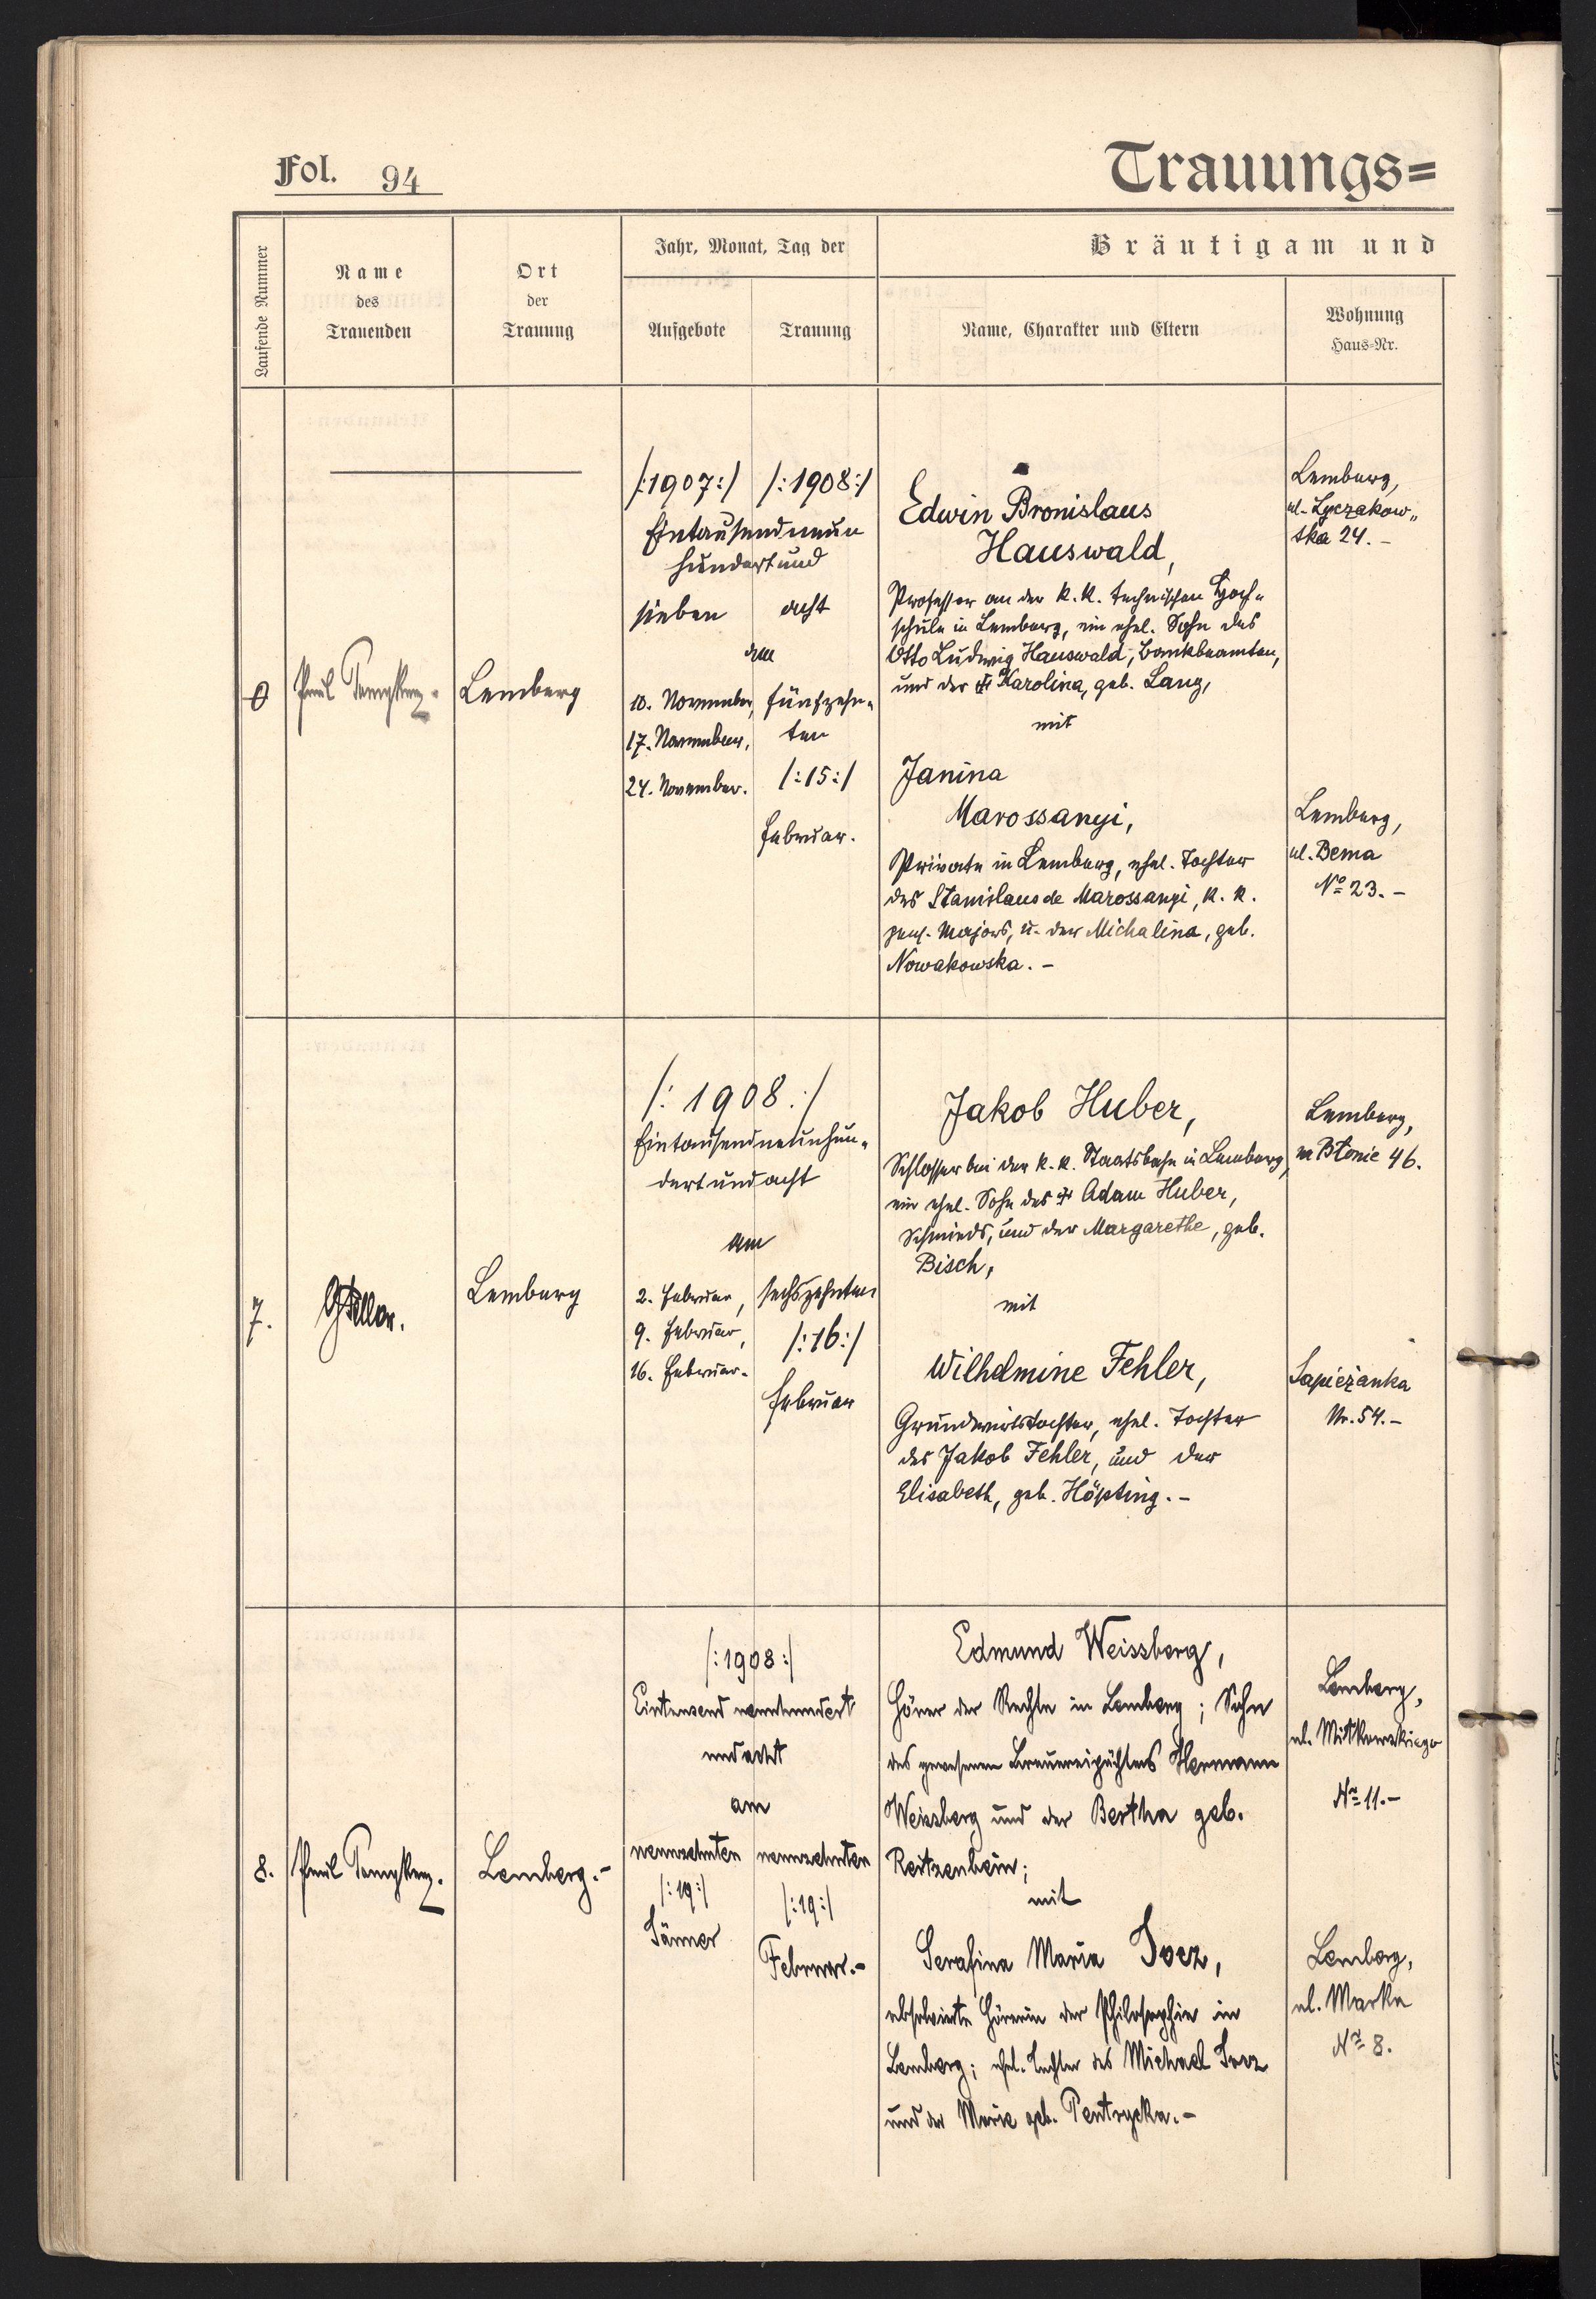 Fol. 94
Trauungs=
Laufende Nummer
Name
des
Trauenden
Ort
der
Trauung
Jahr, Monat, Tag der
Aufgebote
Trauung
Bräutigam und
Name, Charakter und Eltern
Wohnung
Haus=Nr.
Lemberg
/:1907:/ /:1908:/
Eintausendneun
hundert und
sieben acht
am
10. November,
17. November,
24. November.
fünfzehn„
ten
/:15:/
Februar.
Edwin Bronislaus
Hauswald,
Professor an der k. k. technischen Hoch„
schule in Lemberg, ein ehel. Sohn des
Otto Ludwig Hauswald, Bankbeamten,
und der Karolina, geb. Lang,
mit
Janina
Marossanyi,
Private in Lemberg, ehel. Tochter
des Stanislaus de Marossanyi, k. k.
pens. Majors, u. der Michalina, geb.
Nowakowska. –
Lemberg,
ul. Łyczakow„
ska 24. –
Lemberg,
ul. Bema
No 23. –
7.
Lemberg
/: 1908 :/
Eintausendneunhun„
dert und acht
am
2. Februar,
9. Februar,
16. Februar.
sechszehnten
/:16:/
Februar
Jakob Huber,
Schlosser bei der k. k. Staatsbahn in Lemberg,
ein ehel. Sohn des Adam Huber,
Schmieds, und der Margarethe, geb.
Bisch,
mit
Wilhelmine Fehler,
Grundwirtstochter, ehel. Tochter
des Jakob Fehler, und der
Elisabeth, geb. Höpting. –
Lemberg,
na Błonie 46.
Sapieżanka
Nr. 54. –
8.
Lemberg. –
/:1908:/
Eintausend neunhundert
und acht
am
neunzehnten
/:19:/
Jänner
neunzehnten
/:19:/
Februar. –
Edmund Weissberg,
Hörer der Rechte in Lemberg; Sohn
des gewesenen Brauereipächters Hermann
Weissberg und der Bertha geb.
Reitzenbein;
mit
Serafina Maria
absolvierte Hörerin der Philosophie in
Lemberg; ehel. Tochter des Michael
und der Marie geb. Pentrycka. –
Lemberg,
ul.
No 11. –
Lemberg,
ul. Marka
No 8.